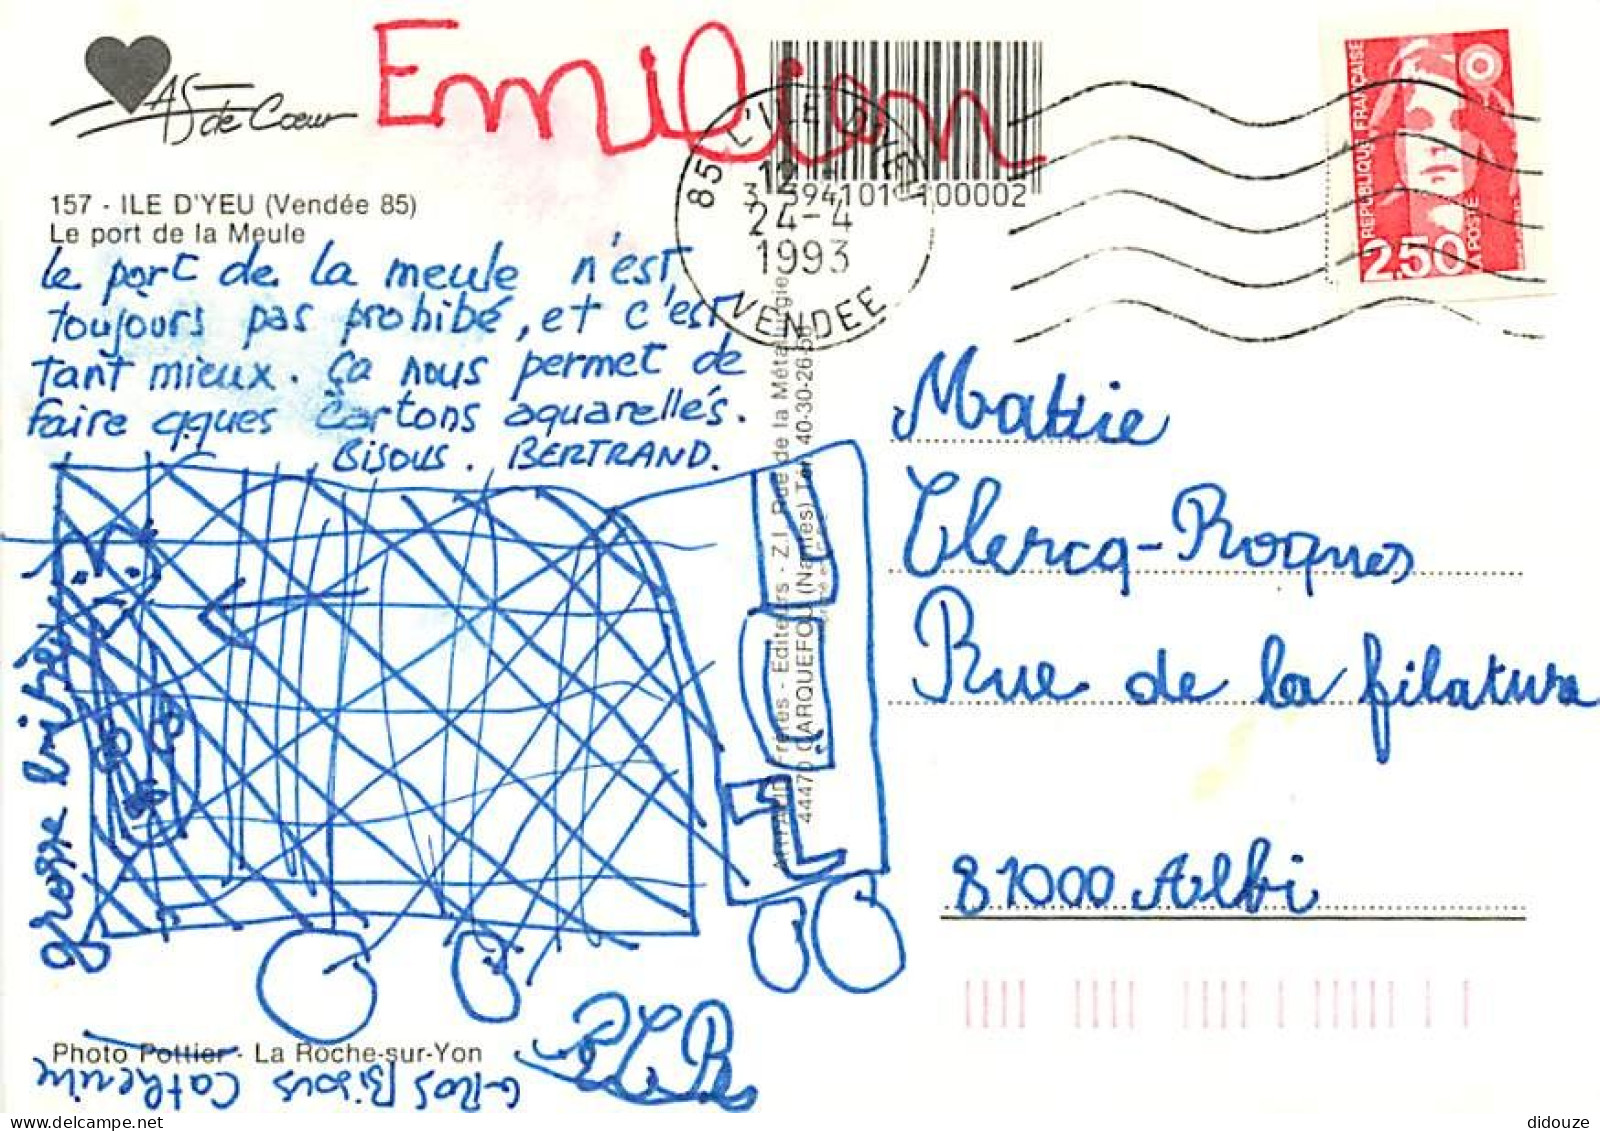 AS de Cœur
Emilien
157 - ILE D'YEU (Vendée 85)
Le port de la Meule
le port de la meule n'est
toujours pas prohibé, et c'est
tant mieux. ça nous permet de
faire qques cartons aquarellés.
Bisous. BERTRAND.
85 L'ILE D'YEU
12
24-4
1993
VENDEE
3 394101 100002
REPUBLIQUE FRANÇAISE
LA POSTE
2,50
ARTAUD Frères - Editeurs - Z.I. Rue de la Métallurgie
44470 CARQUEFOU (Nantes) Tél. 40-30-26-56
Clercq-Roques
Rue de la filature
81000 Albi
Photo Pottier - La Roche-sur-Yon
GROS Bisous Catherine
didouze